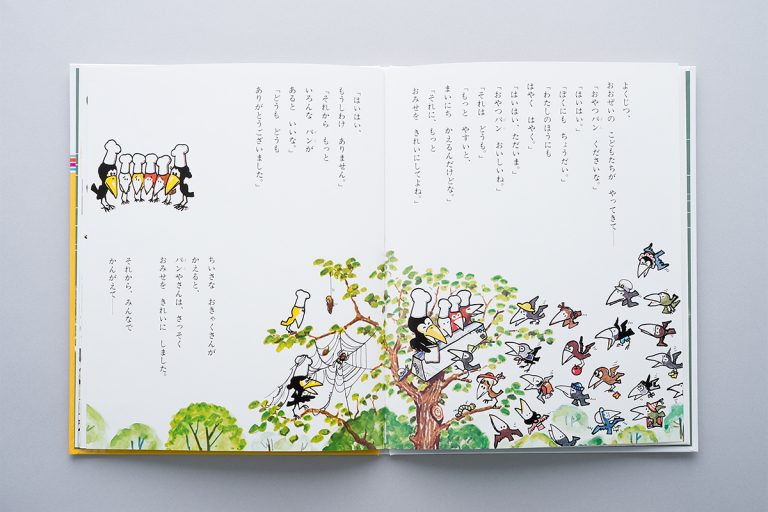 よくじつ、
おおぜいの こどもたちが やってきて——
「おやつパン くださいな。」
「はいはい。」
「ぼくにも ちょうだい。」
「わたしのほうにも
はやく はやく。」
「はいはい、ただいま。」
「おやつパン おいしいね。」
「それは どうも。」
「もっと やすいと、
まいにち かえるんだけどな。」
「それに、もっと
おみせを きれいにしてよね。」
「はいはい、
もうしわけ ありません。」
「それから もっと
いろんな パンが
あると いいな。」
「どうも どうも
ありがとうございました。」
ちいさな おきゃくさんが
かえると、
パンやさんは、さっそく
おみせを きれいに しました。
それから、みんなで
かんがえて——